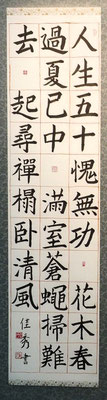 人生五十愧無功 花木春
過夏已中 滿室蒼蠅掃難
去 起尋禪榻卧清風
佳秀書